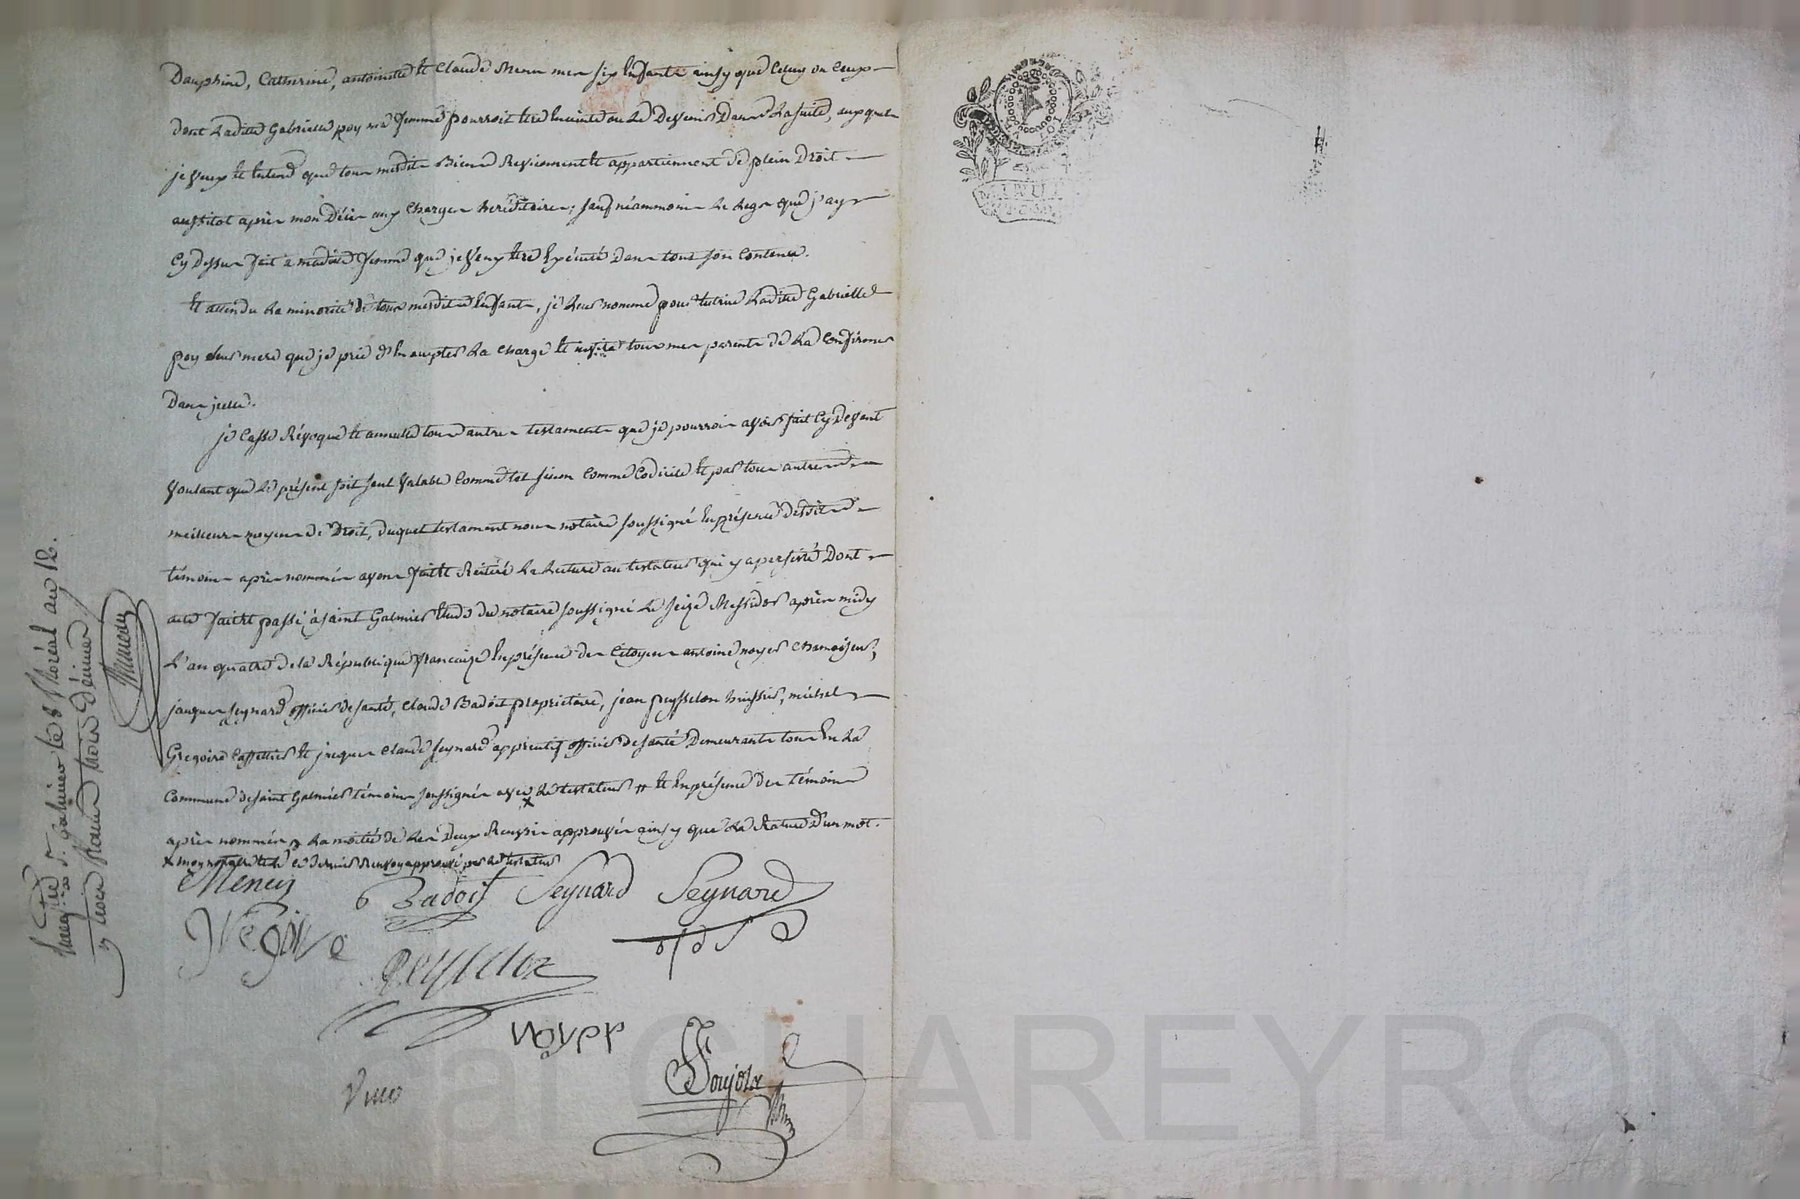 Dauphine, Catherine, antoinette et Claude Menu mes six Enfants ainsy que Celuy ou Ceux
dont Ladite Gabrielle poy ma femme pourroit Etre Enceinte ou Le Devenir Dans La suite, auxquels
je veux et Entend que tous mesdits Biens Reviennent et appartiennent de plein Droit
aussitot après mon Décès aux Charges hereditaires; sauf néammoins Le Legs que j'ay
Cy Dessus fait a madite femme que je veux Etre Exécuté Dans tout son Contenu.
Et attendu La minorité de tous mesdits Enfants, je Leur nomme pour tutrice Ladite Gabrielle
poy Leur mere que je prie d'En accepter La Charge et tous mes parents de La Confirmer
Dans jcelle.
je Casse Révoque et annulle tous autres testaments que je pourrois avoir fait Cy Devant
voulant que Le présent soit seul valable Comme tel sinon Comme Codicile et par tous autres
meilleurs moyens de Droit, duquel testament nous notaire soussigné En présence desdits
témoins après nommés avons fait et Réitéré La Lecture au testateur qui y a persisté Dont
acte fait et passé à saint Galmier Etude du notaire soussigné Le seize Messidor après midy
L'an quatre de la République française En présence des Citoyens antoine noyer Chamoiseur,
jacques seynard officier de santé, Claude Badoit proprietaire, jean peysselon huissier, michel
Gregoire Caffettier et jacques Claude seynard apprentif officier de santé Demeurants tous En La
Commune de saint Galmier témoins soussignés avec Le testateur # Et En présence des témoins
après nommés La moitié de Les Deux Renvois approuvés ainsy que La Rature D'un mot.
x moy notaire Ledernier Renvoy approuvé par Le testateur
Menu Badoit Seynard Seynard
Peysselon
noyer
Poujola
Enreg.tré à S.t galmier le 8 floréal an 12.